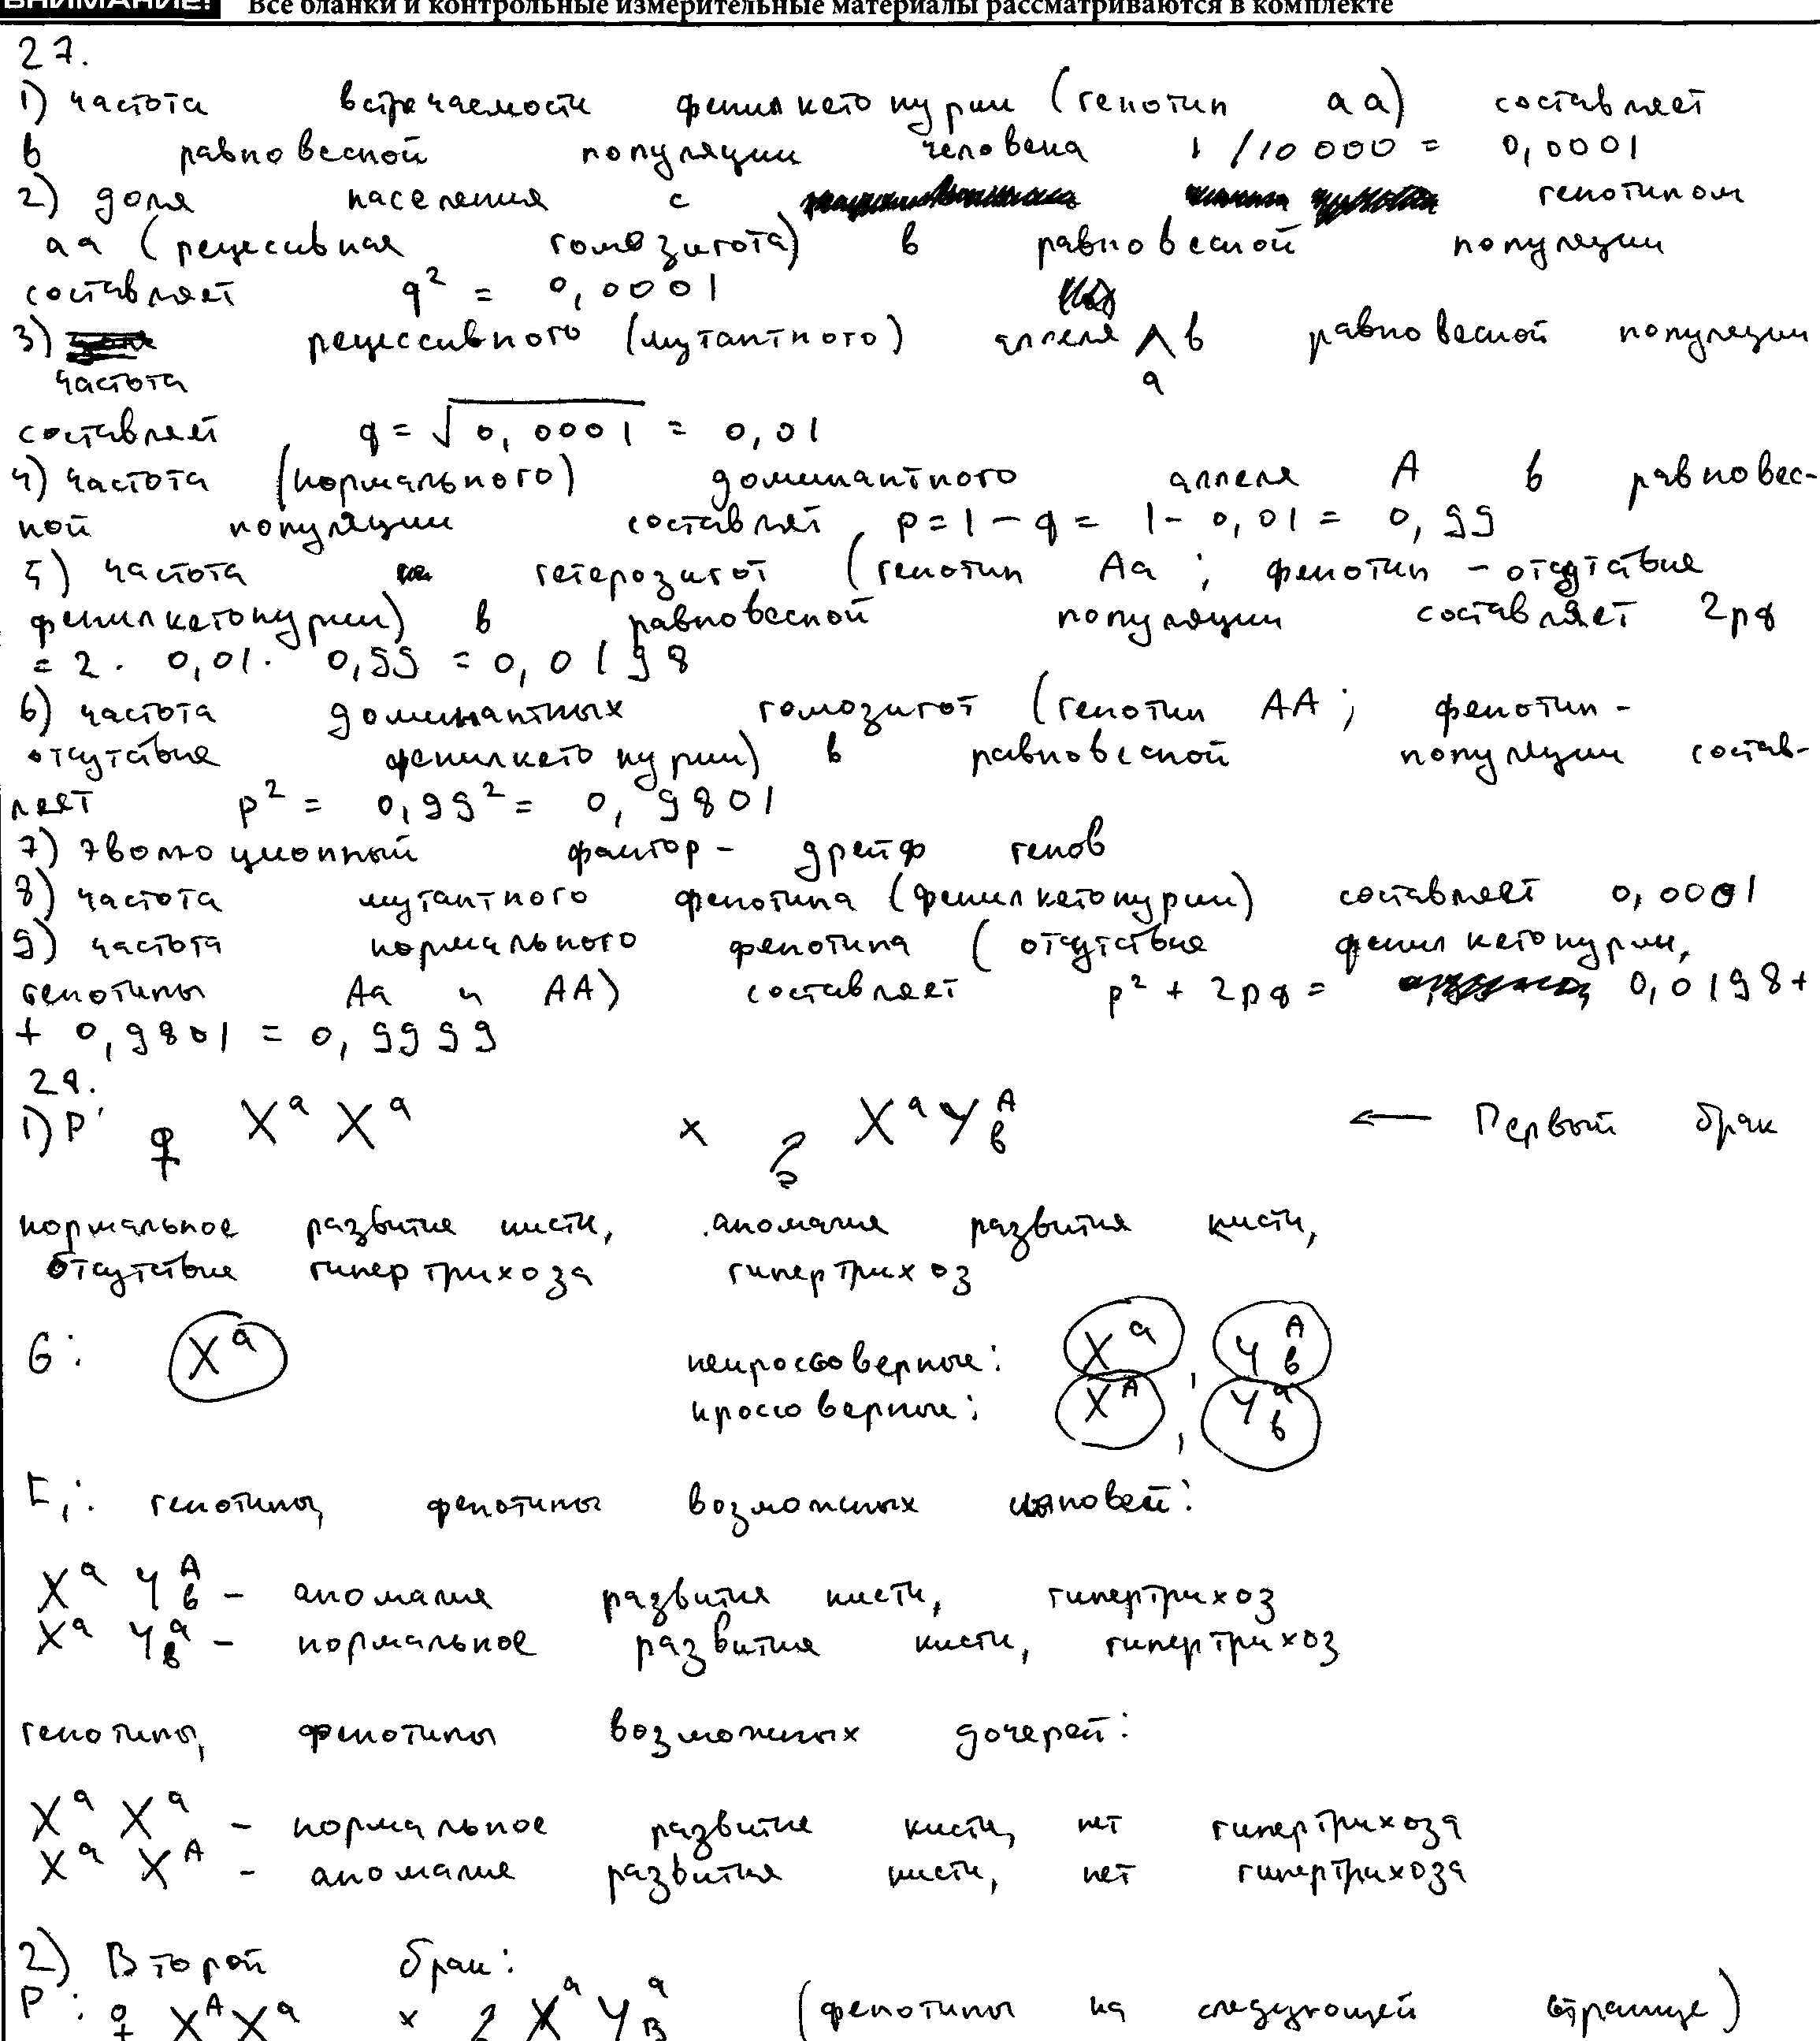 ВНИМАНИЕ! Все бланки и контрольные измерительные материалы рассматриваются в комплекте
27.
1) частота встречаемости фенилкетонурии (генотип aa) составляет
в равновесной популяции человека 1/10 000 = 0,0001
2) доля населения с генотипом
aa (рецессивная гомозигота) в равновесной популяции
составляет q² = 0,0001
3) частота рецессивного (мутантного) аллеля a в равновесной популяции
составляет q = √0,0001 = 0,01
4) частота (нормального) доминантного аллеля A в равновес-
ной популяции составляет p = 1 - q = 1 - 0,01 = 0,99
5) частота гетерозигот (генотип Aa; фенотип - отсутствие
фенилкетонурии) в равновесной популяции составляет 2pq
= 2 · 0,01 · 0,99 = 0,0198
6) частота доминантных гомозигот (генотип AA; фенотип -
отсутствие фенилкетонурии) в равновесной популяции состав-
ляет p² = 0,99² = 0,9801
7) эволюционный фактор - дрейф генов
8) частота мутантного фенотипа (фенилкетонурии) составляет 0,0001
9) частота нормального фенотипа (отсутствие фенилкетонурии,
генотипы Aa и AA) составляет p² + 2pq = 0,0198 +
+ 0,9801 = 0,9999
28.
1) P: ♀ XᵃXᵃ x ♂ XᵃYᴬв ← Первый брак
нормальное развитие кисти, аномалия развития кисти,
отсутствие гипертрихоза гипертрихоз
G: Xᵃ некроссоверные: Xᵃ, Yᴬв
кроссоверные: Xᴬ, Yᵃв
F₁: генотипы, фенотипы возможных сыновей:
Xᵃ Yᴬв - аномалия развития кисти, гипертрихоз
Xᵃ Yᵃв - нормальное развития кисти, гипертрихоз
генотипы, фенотипы возможных дочерей:
Xᵃ Xᵃ - нормальное развитие кисти, нет гипертрихоза
Xᵃ Xᴬ - аномалия развития кисти, нет гипертрихоза
2) Второй брак:
P: ♀ XᴬXᵃ x ♂ XᵃYᵃB (фенотипы на следующей странице)